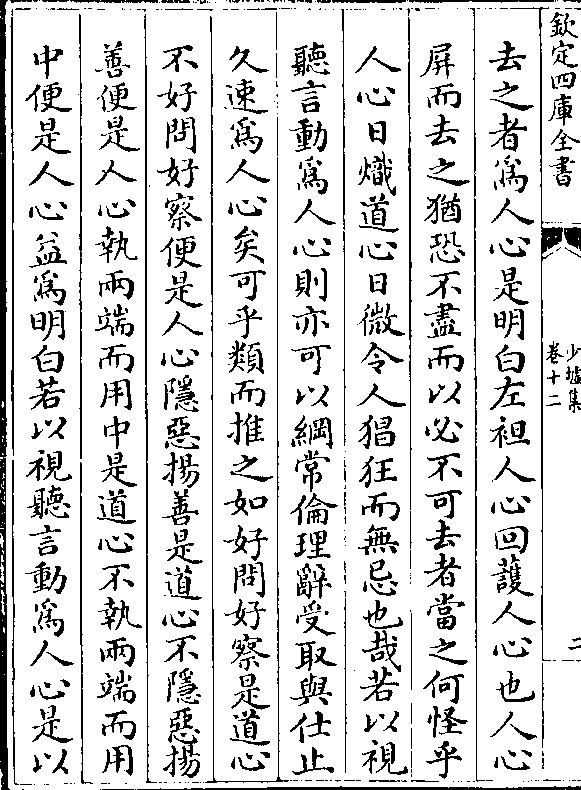 欽定四庫全書
少墟集
卷十二
二
去之者爲人心是明白左袒人心回護人心也人心
屏而去之猶恐不盡而以必不可去者當之何怪乎
人心日熾道心日微令人猖狂而無忌也哉若以視
聽言動爲人心則亦可以綱常倫理辭受取與仕止
久速爲人心矣可乎類而推之如好問好察是道心
不好問好察便是人心隱惡揚善是道心不隱惡揚
善便是人心執兩端而用中是道心不執兩端而用
中便是人心益爲明白若以視聽言動爲人心是以